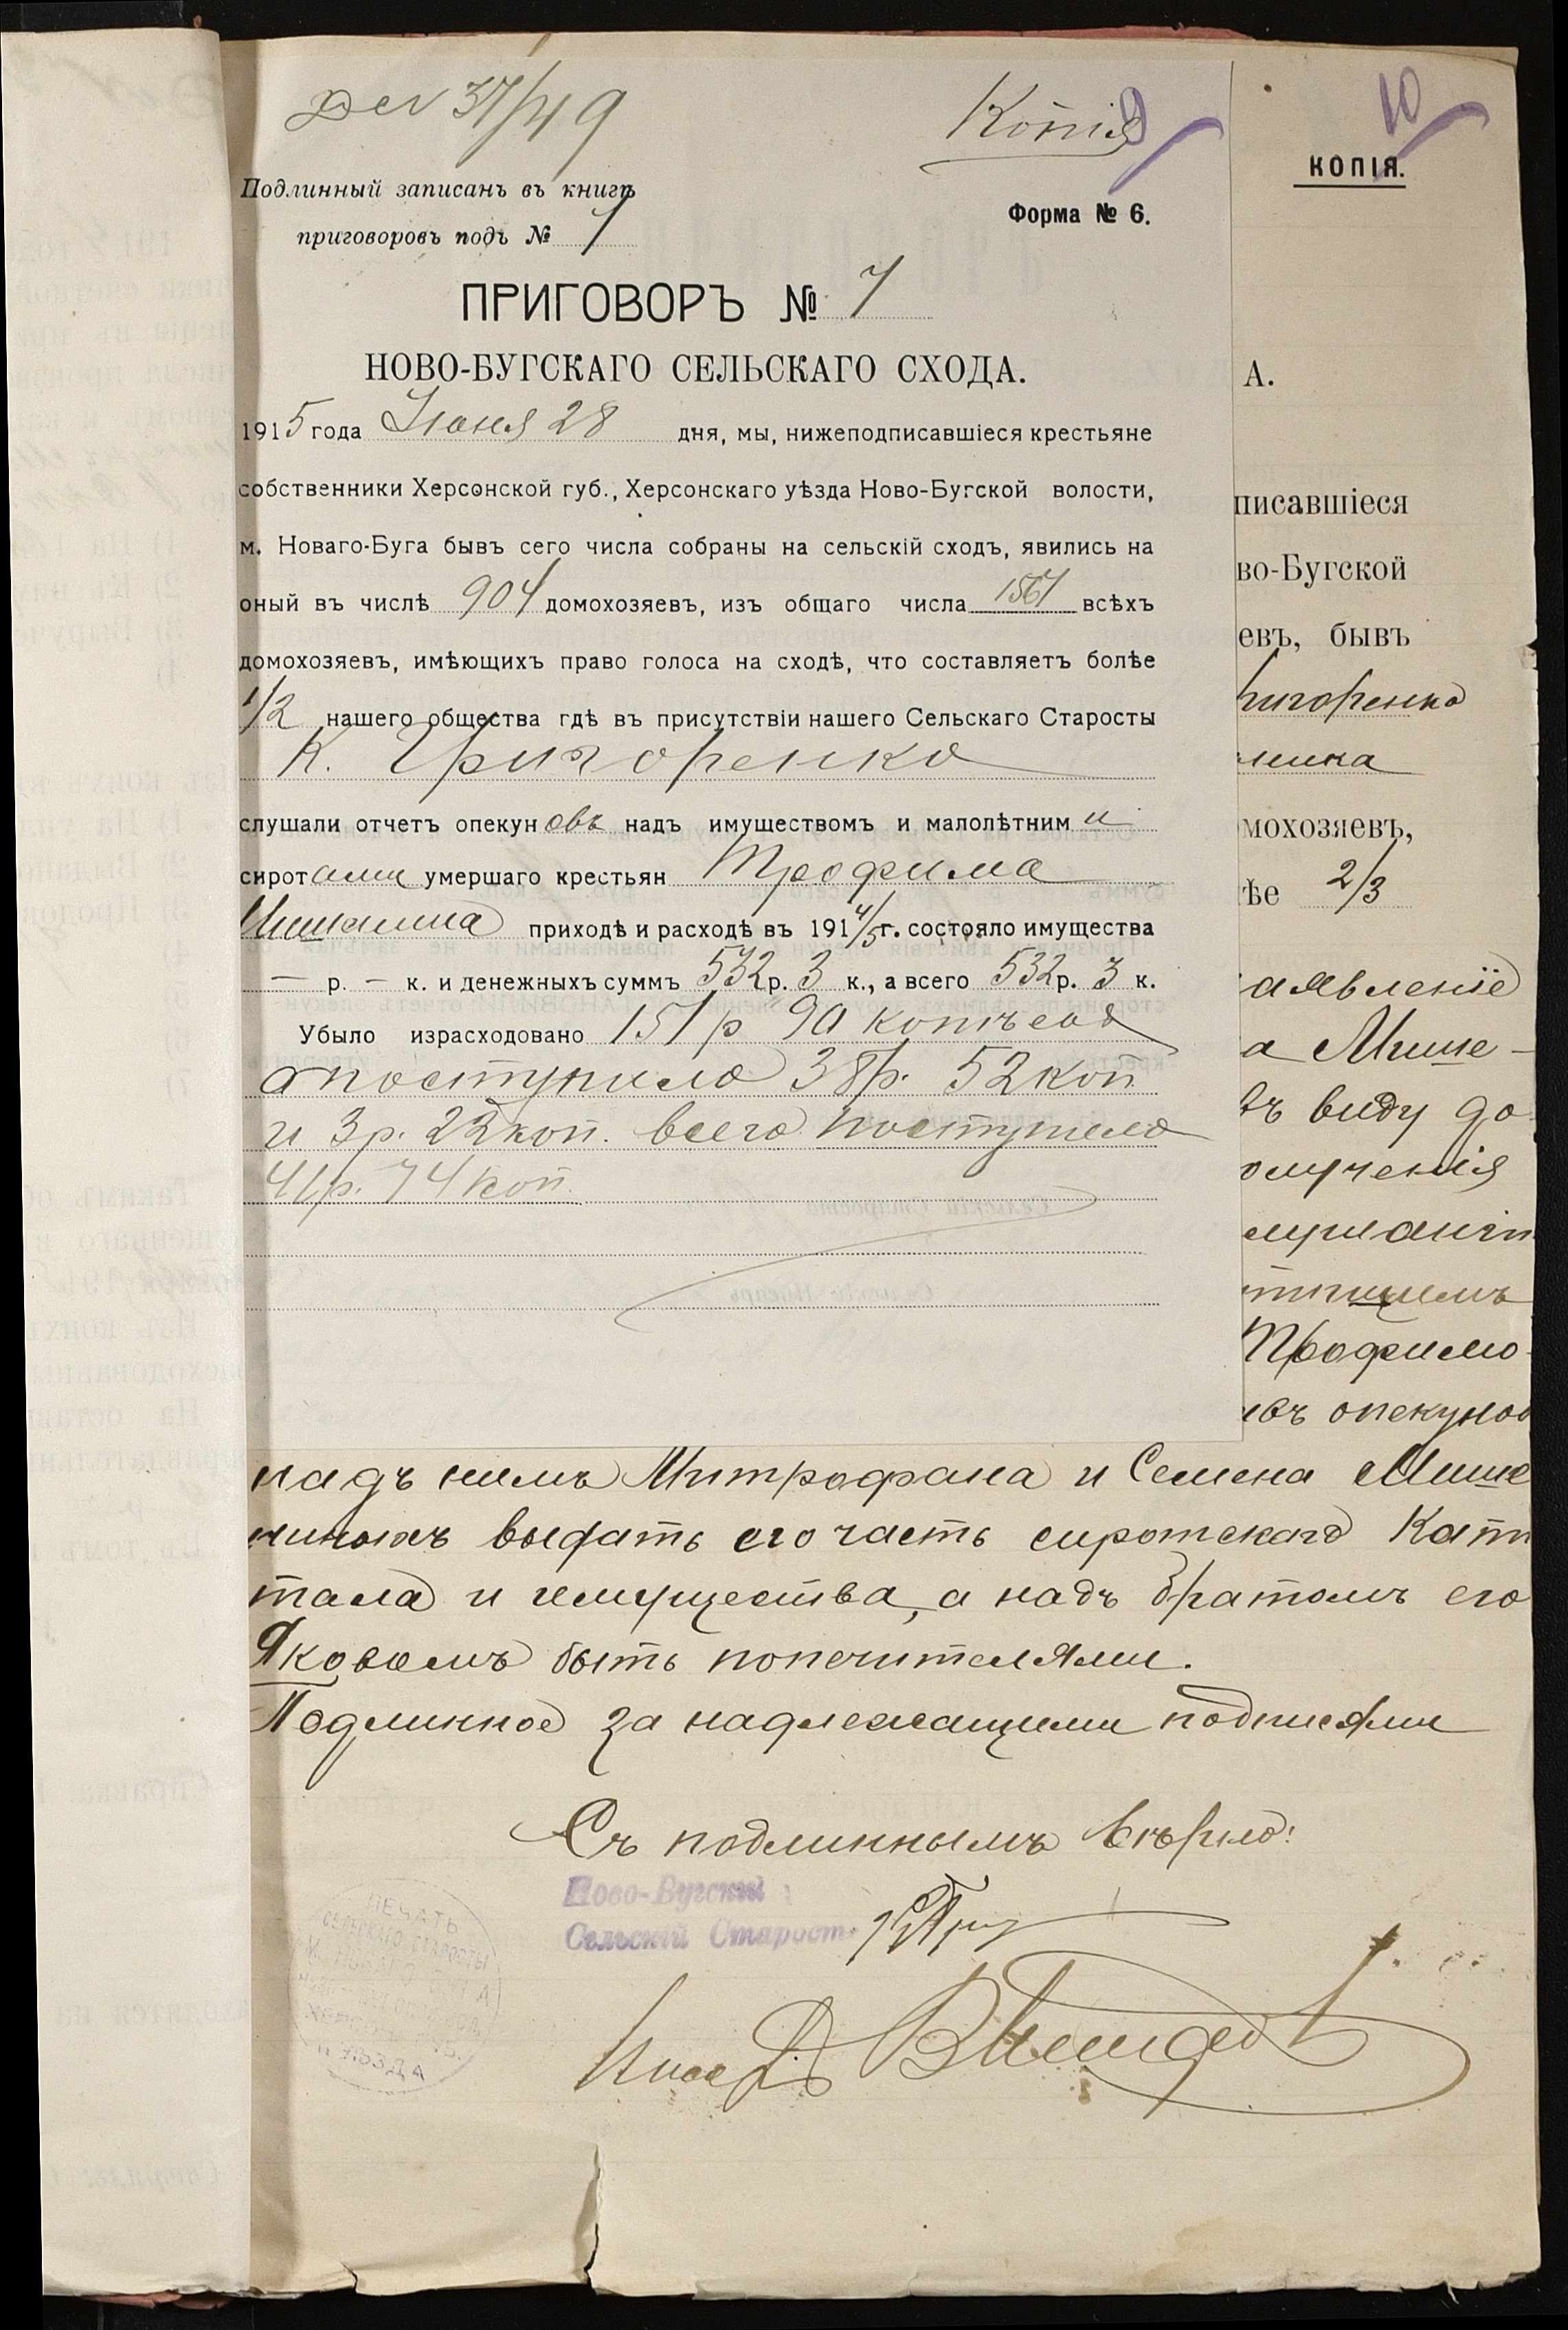 37/49
Копія
9
Подлинный записанъ въ книгѣ
приговоровъ подъ № 7
Форма № 6.
ПРИГОВОРЪ № 7
НОВО-БУГСКАГО СЕЛЬСКАГО СХОДА.
1915 года Июня 28 дня, мы, нижеподписавшіеся крестьяне
собственники Херсонской губ., Херсонскаго уѣзда Ново-Бугской волости,
м. Новаго-Буга бывъ сего числа собраны на сельскій сходъ, явились на
оный въ числѣ 904 домохозяевъ, изъ общаго числа 1567 всѣхъ
домохозяевъ, имѣющихъ право голоса на сходѣ, что составляетъ болѣе
1/2 нашего общества гдѣ въ присутствіи нашего Сельскаго Старосты
К. Григоренко
слушали отчетъ опекуновъ надъ имуществомъ и малолѣтними
сиротами умершаго крестьян Трофима
Мишанина приходѣ и расходѣ въ 1914/5 г. состояло имущества
— р. — к. и денежныхъ суммъ 532 р. 3 к., а всего 532 р. 3 к.
Убыло израсходовано 151 р 90 копѣекъ
а поступило 38 р. 52 коп
и 3 р. 22 коп. всего поступило
41 р. 74 коп.
10
КОПІЯ.
А.
писавшіеся
во-Бугской
евъ, бывъ
григоренко
мохозяевъ,
ѣе 2/3
аявленіе
а Мише-
въ виду до
олученія
Трофимо
опекунов
надъ нимъ Митрофана и Семена Мише
ниныхъ выдать его часть сиротскаго Капи
тала и имущества, а надъ братомъ его
Яковомъ быть попечителями.
Подлинное за надлежащими подписями
Съ подлиннымъ вѣрно:
Ново-Бугскій
Сельскій Старост
ПЕЧАТЬ
СЕЛЬСКАГО СТАРОСТЫ
М. НОВАГО БУГА
УѢЗДА